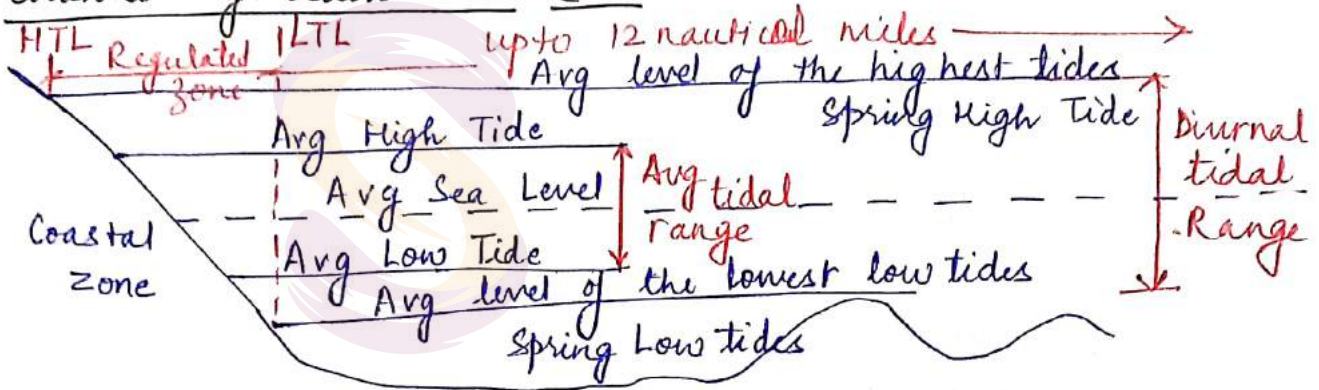 HTL Regulated zone LTL upto 12 nautical miles
Avg level of the highest tides
Spring High Tide
Avg High Tide
Avg Sea Level
Avg tidal range
Diurnal tidal Range
Coastal zone
Avg Low Tide
Avg level of the lowest low tides
Spring Low tides